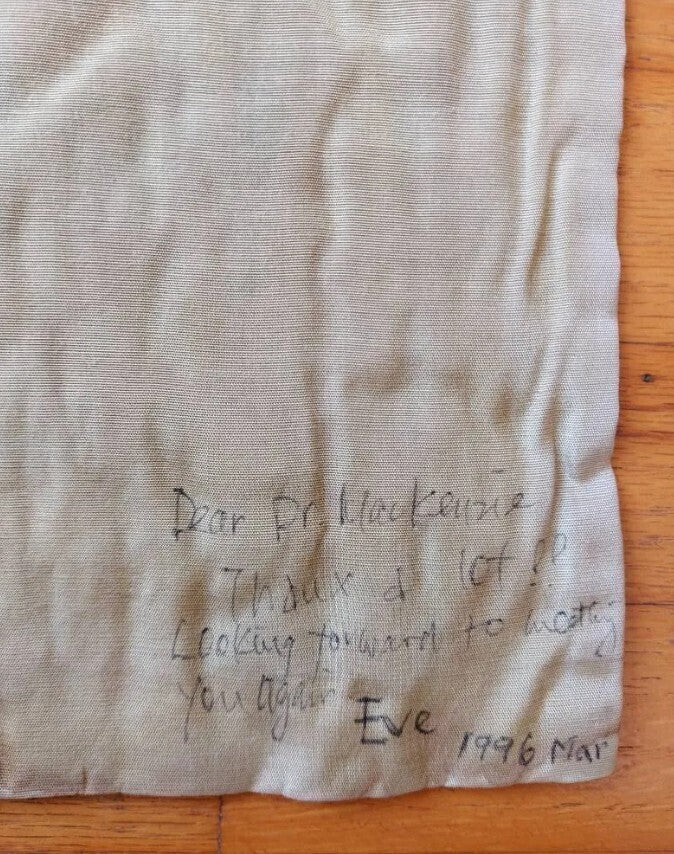 Dear Dr. Mackenzie
Thanx a lot!!
Looking forward to meeting
you again
Eve 1996 Mar